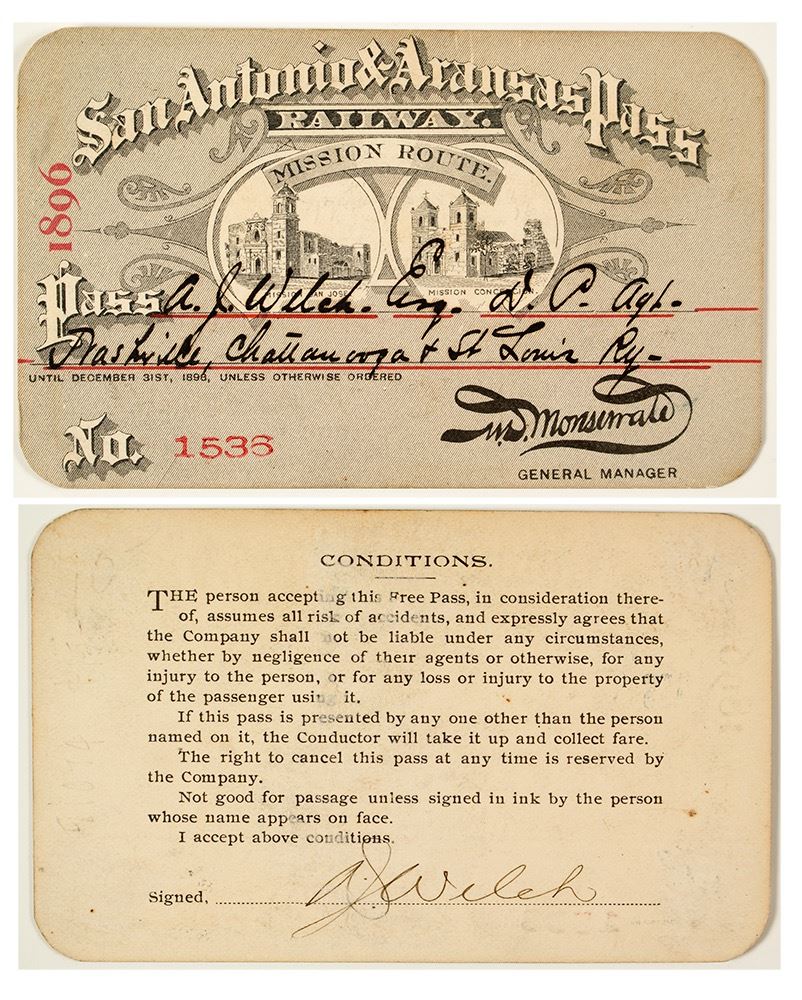 San Antonio & Aransas Pass
RAILWAY.
MISSION ROUTE.
1896
MISSION SAN JOSE
MISSION CONCEPCION.
Pass A. J. Welch. Esq. D. P. Agt.
Nashville, Chattanooga & St Louis Ry
UNTIL DECEMBER 31ST, 1896, UNLESS OTHERWISE ORDERED
No. 1536
GENERAL MANAGER
CONDITIONS.
THE person accepting this Free Pass, in consideration there-
of, assumes all risk of accidents, and expressly agrees that
the Company shall not be liable under any circumstances,
whether by negligence of their agents or otherwise, for any
injury to the person, or for any loss or injury to the property
of the passenger using it.
If this pass is presented by any one other than the person
named on it, the Conductor will take it up and collect fare.
The right to cancel this pass at any time is reserved by
the Company.
Not good for passage unless signed in ink by the person
whose name appears on face.
I accept above conditions.
Signed, A J Welch